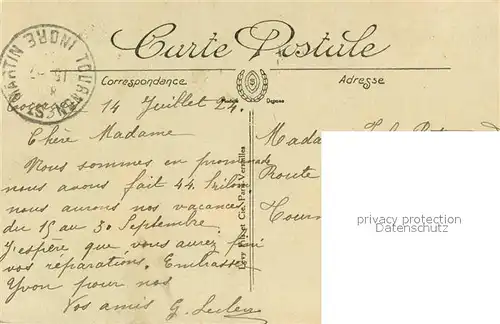 Carte Postale
Correspondance
Adresse
TOURNON ST MARTIN INDRE
14 Juillet 24.
Chère Madame
Nous sommes en promenade
nous avons fait 44 Kilom
nous aurons nos vacances
du 15 au 30 Septembre.
J'espère que vous aurez fini
vos réparations. Embrassez
Yvon pour nous
Vos amis G. Leclerc
Madame
Route
Tourn
privacy protection
© oldthing.de